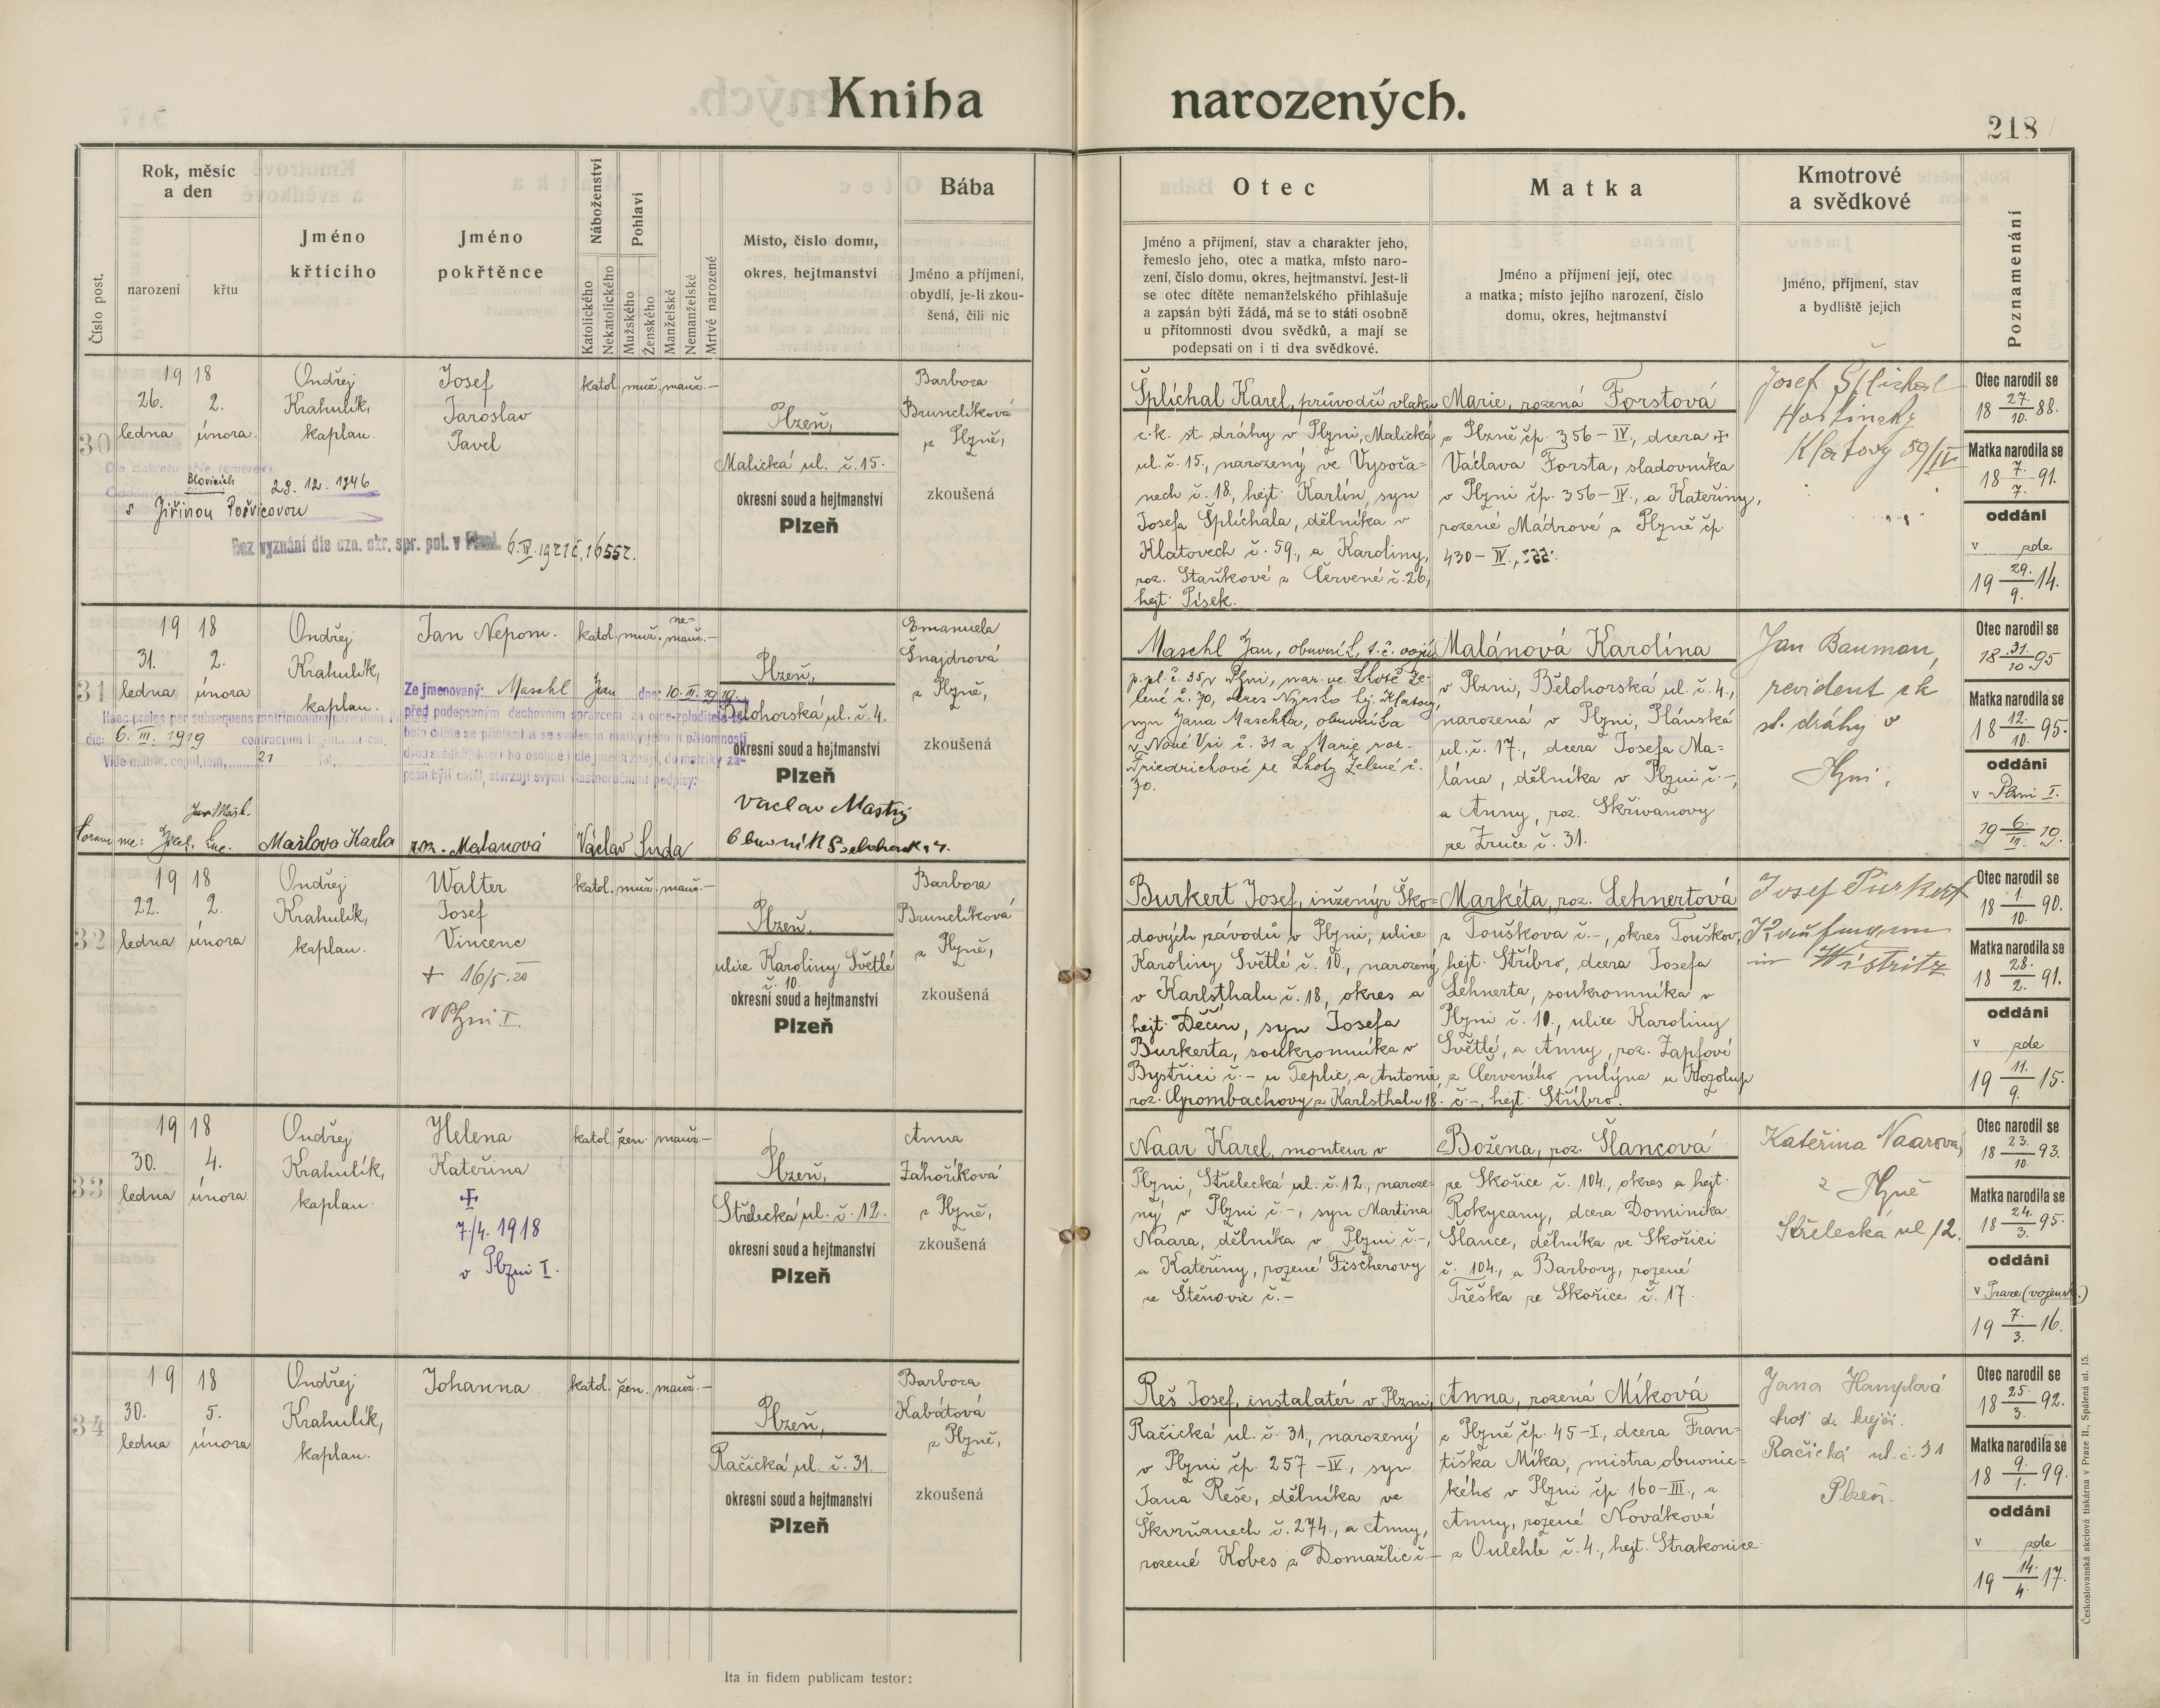 Kniha narozených.
218
Číslo post.
Rok, měsíc
a den
narození
křtu
Jméno
křtícího
Jméno
pokřtěnce
Náboženství
Katolického
Nekatolického
Pohlaví
Mužského
Ženského
Manželské
Nemanželské
Mrtvě narozené
Místo, číslo domu,
okres, hejtmanství
Bába
Jméno a příjmení,
obydlí, je-li zkou-
šená, čili nic
Otec
Jméno a příjmení, stav a charakter jeho,
řemeslo jeho, otec a matka, místo naro-
zení, číslo domu, okres, hejtmanství. Jest-li
se otec dítěte nemanželského přihlašuje
a zapsán býti žádá, má se to státi osobně
u přítomnosti dvou svědků, a mají se
podepsati on i ti dva svědkové.
Matka
Jméno a příjmení její, otec
a matka; místo jejího narození, číslo
domu, okres, hejtmanství
Kmotrové
a svědkové
Jméno, příjmení, stav
a bydliště jejich
Poznamenání
30
19 18
26. 2.
ledna února
Ondřej
Krahulík,
kaplan.
Josef
Jaroslav
Pavel
katol. muž. manž. —
Plzeň,
Malická ul. č. 15.
okresní soud a hejtmanství
Plzeň
Barbora
Brunclíková
z Plzně,
zkoušená
Blovicích 28. 12. 1946
s Jiřinou Pořvicovou
Bez vyznání dle ozn. okr. spr. pol. v Plzni 6. IV. 1921 č. 16552.
Šplíchal Karel, průvodčí vlaku
c.k. st. dráhy v Plzni, Malická
ul. č. 15., narozený ve Vysoča-
nech č. 18, hejt. Karlín, syn
Josefa Šplíchala, dělníka v
Klatovech č. 59., a Karoliny,
roz. Staňkové z Červené č. 26,
hejt. Písek.
Marie, rozená Forstová
z Plzně čp. 356 – IV., dcera †
Václava Forsta, sladovníka
v Plzni čp. 356 – IV., a Kateřiny,
rozené Mádrové z Plzně čp.
430 – IV.,
Josef Šplíchal
Hostinský
Klatovy 59/IV
Otec narodil se
18 27./10. 88.
Matka narodila se
18 7./7. 91.
oddáni
v zde
19 29./9. 14.
31
19 18
31. 2.
ledna února
Ondřej
Krahulík,
kaplan.
Jan Nepom.
katol. muž. ne-
manž. —
Plzeň,
Bělohorská ul. č. 4.
okresní soud a hejtmanství
Plzeň
Emanuela
Šnajdrová
z Plzně,
zkoušená
Haec proles per subsequens matrimonium parentum
die: 6. III. 1919 contractum legitimata est.
Vide matric. copul. tom. 21 fol.
Ze jmenovaný: Maschl Jan dne: 10. III. 1919.
před podepsaným duchovním správcem za otce-zploditele to-
hoto dítěte se přihlásil a se svolením matky jeho u přítomnosti
dvou svědků, kteří ho osobně i dle jména znají, do matriky za-
psán býti chtěl, stvrzují svými vlastnoručními podpisy:
Coram me:
Mašlova Karla roz. Malanová Václav Suda
Vaclav Mastný
Maschl Jan, obuvník, t. č. voják
p. pl. č. 35 v Plzni, nar. ve Lhotě Ze-
lené č. 70, okres Nýrsko hej. Klatovy,
syn Jana Maschla, obuvníka
v Nové Vsi č. 31 a Marie roz.
Friedrichové ze Lhoty Zelené č.
70.
Malánová Karolína
v Plzni, Bělohorská ul. č. 4.,
narozená v Plzni, Plánská
ul. č. 17., dcera Josefa Ma-
lána, dělníka v Plzni č. –,
a Anny, roz. Skřivanovy
ze Zruče č. 31.
Jan Bauman,
revident ck
st. dráhy v
Plzni.
Otec narodil se
18 31./10. 95
Matka narodila se
18 12./10. 95.
oddáni
v Plzni I.
19 6./III. 19.
32
19 18
22. 2.
ledna února
Ondřej
Krahulík,
kaplan.
Walter
Josef
Vincenc
+ 16/5. 20
v Plzni I.
katol. muž. manž. —
Plzeň,
ulice Karoliny Světlé
č. 10.
okresní soud a hejtmanství
Plzeň
Barbora
Brunclíková
z Plzně,
zkoušená
Burkert Josef, inženýr Ško-
dových závodů v Plzni, ulice
Karoliny Světlé č. 10., narozený
v Karlsthalu č. 18, okres a
hejt. Děčín, syn Josefa
Burkerta, soukromníka v
Bystřici č. – u Teplic, a Antonie,
roz. Grombachovy z Karlsthalu 18.
Markéta, roz. Lehnertová
z Touškova č. –, okres Touškov,
hejt. Stříbro, dcera Josefa
Lehnerta, soukromníka v
Plzni č. 10., ulice Karoliny
Světlé, a Anny, roz. Zapfové
z Červeného mlýna u Kozolup
č. –, hejt. Stříbro.
Josef Purkert
Kaufmann
in Wistritz
Otec narodil se
18 1./10. 90.
Matka narodila se
18 28./2. 91.
oddáni
v zde
19 11./9. 15.
33
19 18
30. 4.
ledna února
Ondřej
Krahulík,
kaplan.
Helena
Kateřina
†
7/4. 1918
v Plzni I.
katol. žen. manž. —
Plzeň,
Střelecká ul. č. 12.
okresní soud a hejtmanství
Plzeň
Anna
Záhoříková
z Plzně,
zkoušená
Naar Karel, monteur v
Plzni, Střelecká ul. č. 12., naroze-
ný v Plzni č. –, syn Martina
Naara, dělníka v Plzni č. –,
a Kateřiny, rozené Fischerovy
ze Štěnovic č. –
Božena, roz. Šlancová
ze Skořice č. 104., okres a hejt.
Rokycany, dcera Dominika
Šlance, dělníka ve Skořici
č. 104., a Barbory, rozené
Třeška ze Skořice č. 17.
Kateřina Naarová,
z Plzně
Střelecká ul 12.
Otec narodil se
18 23./10. 93.
Matka narodila se
18 24./3. 95.
oddáni
v Praze (vojensk.)
19 7./3. 16.
34
19 18
30. 5.
ledna února
Ondřej
Krahulík,
kaplan.
Johanna
katol. žen. manž. —
Plzeň,
Račická ul. č. 31.
okresní soud a hejtmanství
Plzeň
Barbora
Kabátová
z Plzně,
zkoušená
Reš Josef, instalatér v Plzni,
Račická ul. č. 31., narozený
v Plzni čp. 257 – IV., syn
Jana Reše, dělníka ve
Škvrňanech č. 274., a Anny,
rozené Kobes z Domažlic č. –
Anna, rozená Míková
z Plzně čp. 45 – I, dcera Fran-
tiška Míka, mistra obuvnic-
kého v Plzni čp. 160 – III., a
Anny, rozené Novákové
z Oulehle č. 4., hejt. Strakonice
Jana Hamplová
choť d. krejčí.
Račická ul. č. 31
Plzeň.
Otec narodil se
18 25./3. 92.
Matka narodila se
18 9./1. 99.
oddáni
v zde
19 14./4. 17.
Ita in fidem publicam testor:
Českoslovanská akciová tiskárna v Praze II., Spálená ul. 15.